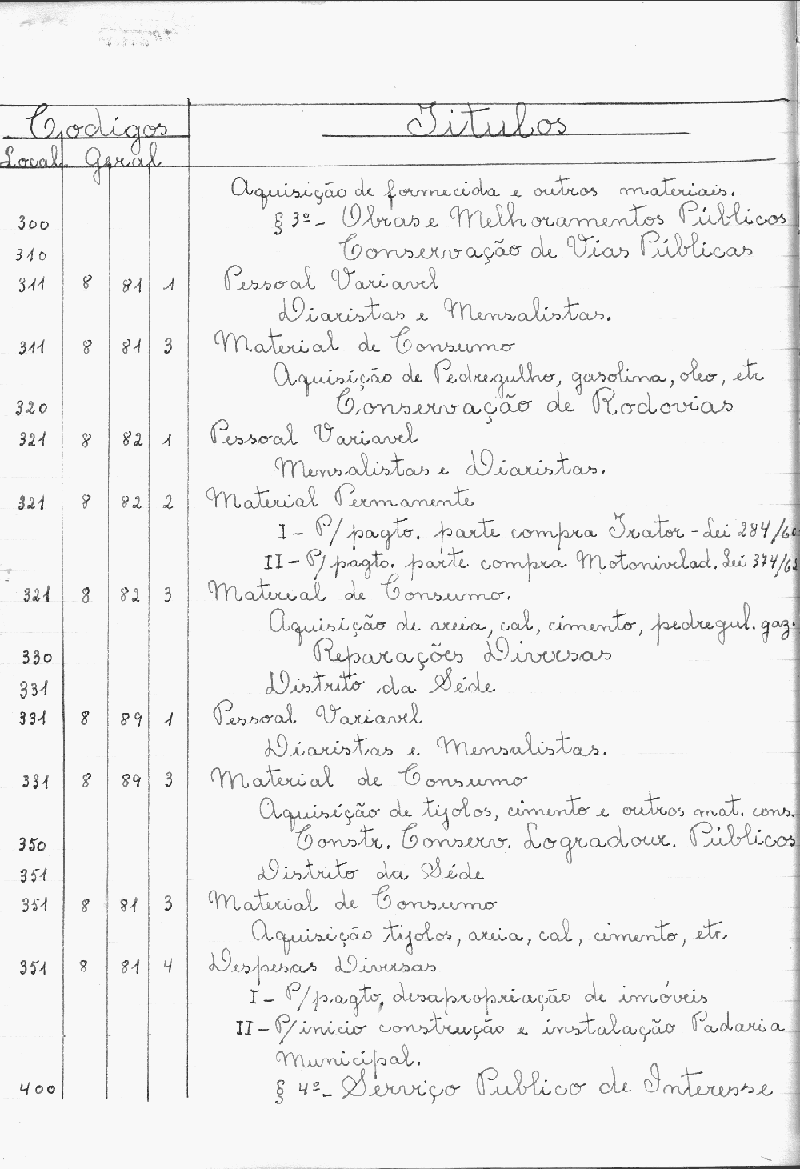 Codigos Titulos
Local Geral
Aquisição de fornecida e outros materiais.
300 § 3º - Obras e Melhoramentos Públicos
310 Conservação de Vias Públicas
311 8 81 1 Pessoal Variavel
Diaristas e Mensalistas.
311 8 81 3 Material de Consumo
Aquisição de Pedregulho, gasolina, oleo, etc
320 Conservação de Rodovias
321 8 82 1 Pessoal Variavel
Mensalistas e Diaristas.
321 8 82 2 Material Permanente
I - P/ pagto. parte compra Trator - Lei 284/60
II - P/ pagto. parte compra Motonivelad. Lei 374/62
321 8 82 3 Material de Consumo.
Aquisição de areia, cal, cimento, pedregul. gaz.
330 Reparações Diversas
331 Distrito da Séde
331 8 89 1 Pessoal Variavel
Diaristas e Mensalistas.
331 8 89 3 Material de Consumo
Aquisição de tijolos, cimento e outros mat. cons.
350 Constr. Conserv. Logradour. Públicos
351 Distrito da Séde
351 8 81 3 Material de Consumo
Aquisição tijolos, areia, cal, cimento, etc.
351 8 81 4 Despesas Diversas
I - P/ pagto, desapropriação de imóveis
II - P/ inicio construção e instalação Padaria
Municipal.
400 § 4º - Serviço Publico de Interesse